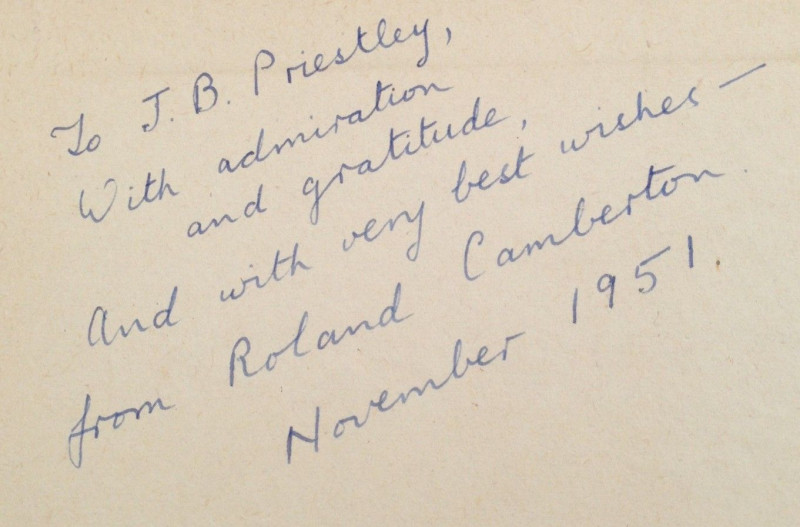 To J. B. Priestley,
With admiration
and gratitude,
And with very best wishes —
from Roland Camberton.
November 1951.